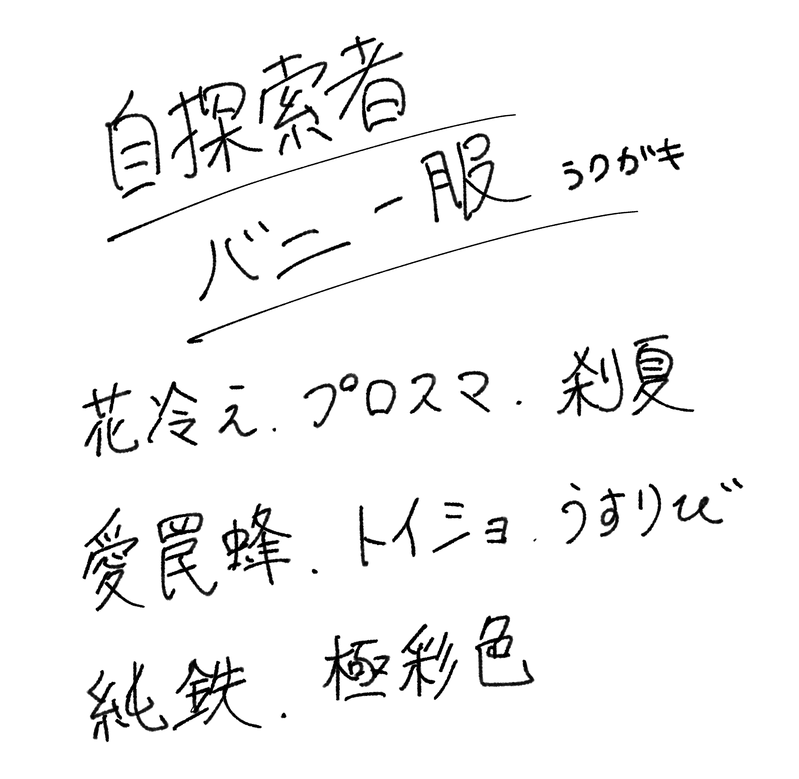 自探索者
バニー服 ラクガキ
花冷え.プロスマ.刹夏
愛罠蜂.トイミョ.うすりび
純鉄.極彩色